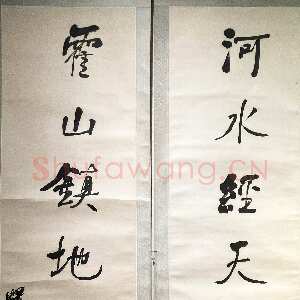 河水經天
霍山鎮地
Shufawang.CN